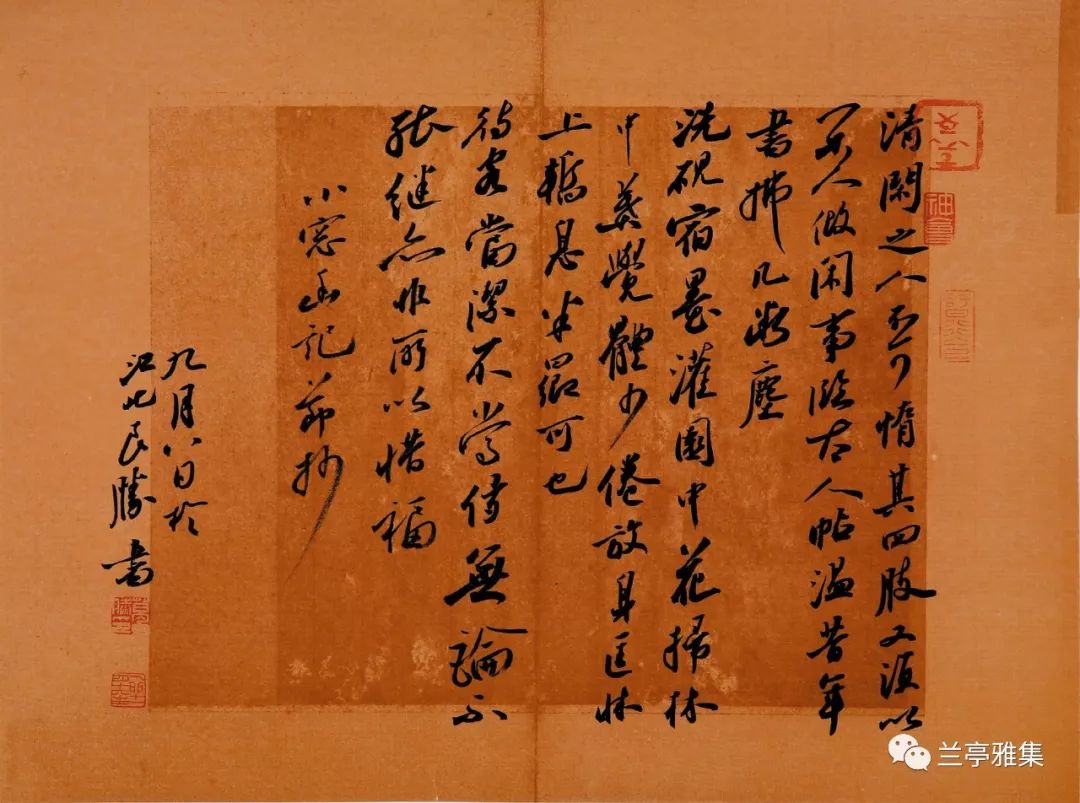 清閑之人不可惰其四肢又須以
闲人做闲事臨古人帖温昔年
書拂几微塵
洗硯宿墨灌園中花掃林
中葉覺體少倦放身匡床
上暫息半晌可也
待客當潔不當侈無論不
能继亦非所以惜福
小窓幽記節抄
九月八日於
江北良勝書
兰亭雅集